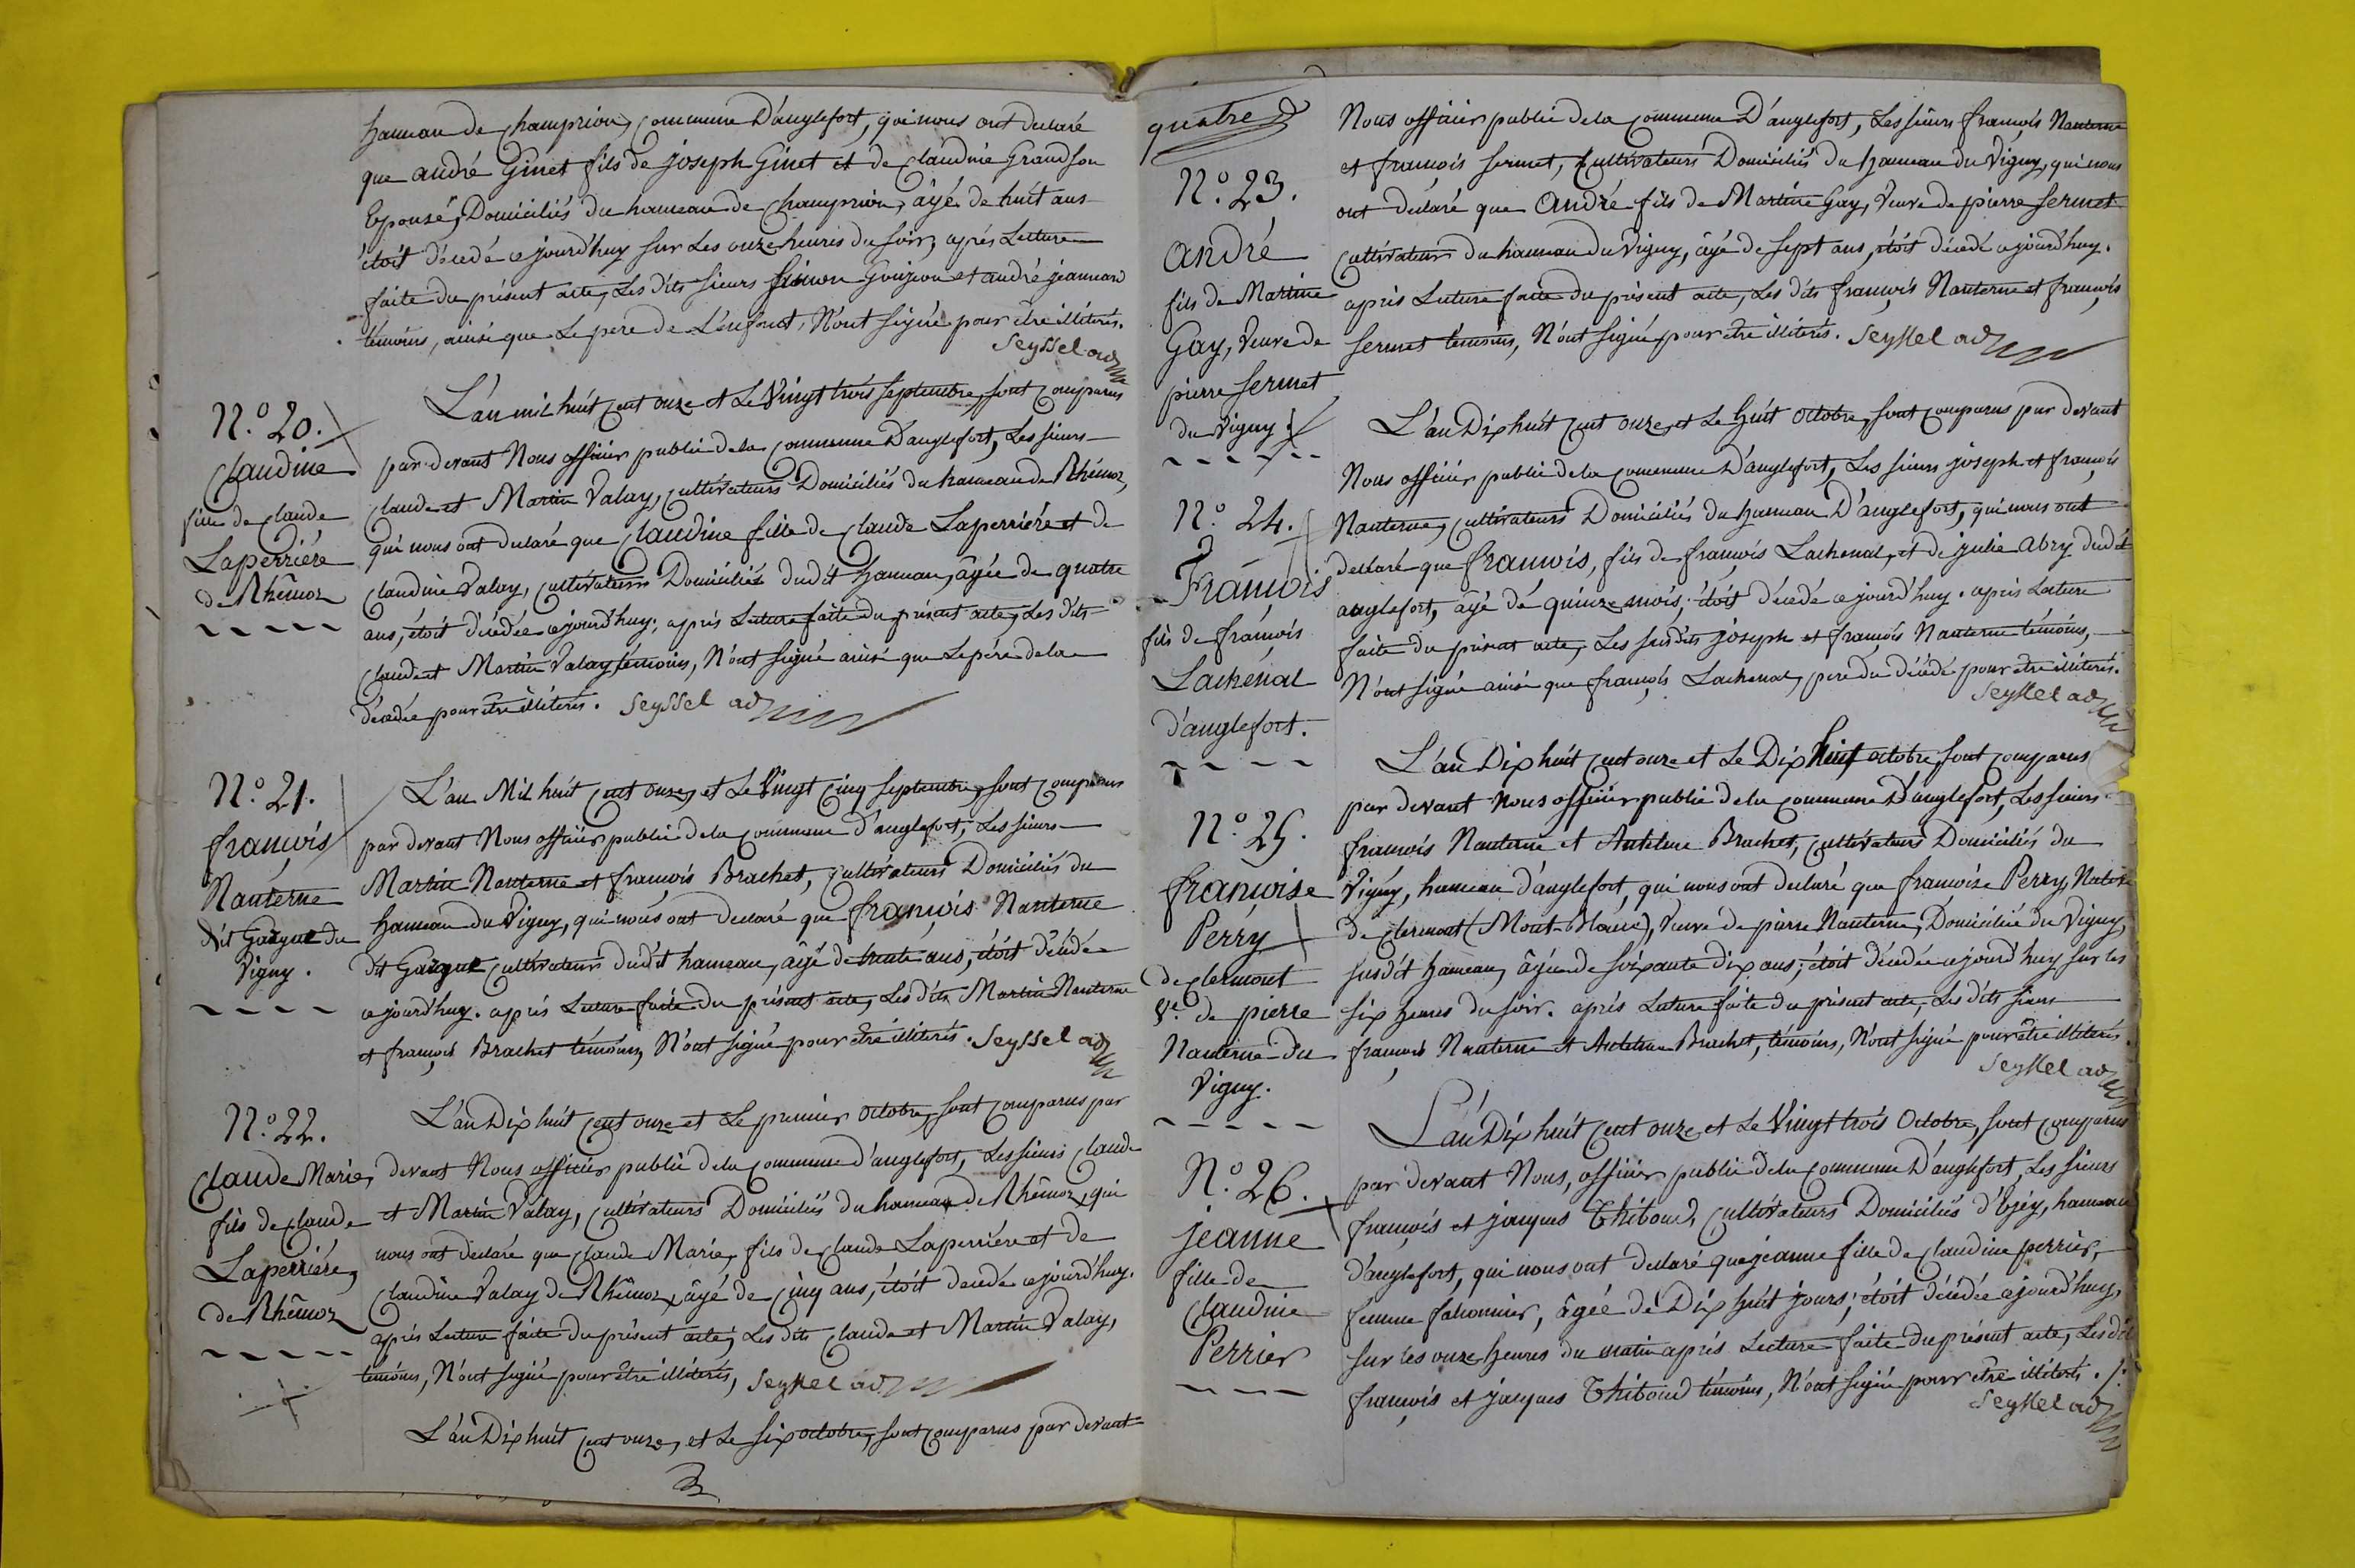 hameau de champrion, commune D'anglefort, qui nous ont declaré
que andré Ginet fils de joseph Ginet et de claudine Grandson
Epousé, Domiciliés du hameau de champrion, âgé de huit ans
étoit décedé cejourd'huy sur Les onze heures du soir, après Lecture
faite du présent acte, Les dits sieurs Simon Goujeon et andré jeannard
témoins, ainsi que Le pere de L'enfant, N'ont signé pour être illiterés.
Seyssel adj
N.º 20.
claudine
fille de claude
Laperriére
de Rhêmoz
L'an mil huit cent onze et Le Vingt trois septembre, sont comparus
par devant Nous officier public de la commune D'anglefort, Les sieurs
claude et Martin Valay, cultivateurs Domiciliés du hameau de Rhémoz,
qui nous ont declaré que claudine fille de claude Laperriére et de
claudine Valay, cultivateurs Domiciliés dudit hameau, âgée de quatre
ans, étoit décedée cejourd'huy; après Lecture faite du présent acte, Les dits
claude et Martin Valay, témoins, N'ont signé ainsi que Le pére de la
décedée pour être illiterés. Seyssel adj
N.º 21.
françois
Nanterne
dit Gaigue du
Vigny.
L'an Mil huit cent onze, et Le Vingt cinq septembre, sont comparus
par devant Nous officier public de la commune d'anglefort, Les sieurs
Martin Nanterne et françois Brachet, cultivateurs Domiciliés du
hameau du Vigny, qui nous ont declaré que françois Nanterne
dit Gaigue cultivateur dudit hameau, âgé de trente ans, étoit décedé
cejourd'huy. après Lecture faite du présent acte, Les dits Martin Nanterne
et françois Brachet témoins, N'ont signé pour être illiterés. Seyssel adj
N.º 22.
Claude Marie,
fils de claude
Laperriére,
de Rhêmoz
L'an Dix huit cent onze et Le premier octobre, sont comparus par
devant Nous officier public de la commune d'anglefort, Les sieurs claude
et Martin Valay, cultivateurs Domiciliés du hameau de Rhêmoz, qui
nous ont declaré que claude Marie, fils de claude Laperriére et de
claudine Valay de Rhêmoz, âgé de cinq ans, étoit decedé cejourd'huy.
après Lecture faite du présent acte, Les dits claude et Martin Valay,
témoins, N'ont signé pour être illiterés, Seyssel adj
L'an Dix huit cent onze, et Le six octobre, sont comparus par devant
quatre
N.º 23.
André
fils de Martine
Gay, Veuve de
pierre sermet
du Vigny.
Nous officier public de la commune D'anglefort, Les sieurs françois Nanterne
et françois sermet, cultivateurs Domiciliés du hameau du Vigny, qui nous
ont declaré que André fils de Martine Gay, Veuve de pierre sermet
cultivateurs du hameau du Vigny, âgé de sept ans, étoit décedé cejourd'huy.
après Lecture faite du présent acte, Les dits françois Nanterne et françois
sermet temoins, N'ont signé pour être illiterés. Seyssel adj
N.º 24.
François
fils de françois
Lachenal
d'anglefort.
L'an Dix huit cent onze, et Le huit octobre, sont comparus par devant
Nous officier public de la commune D'anglefort, Les sieurs joseph et françois
Nanterne, cultivateurs Domiciliés du hameau D'anglefort, qui nous ont
declaré que françois, fils de françois Lachenal, et de julie Abry dudit
anglefort, âgé de quinze mois, étoit décedé cejourd'huy. après Lecture
faite du présent acte, Les susdits joseph et françois Nanterne témoins,
N'ont signé ainsi que françois Lachenal, pere du décedé pour être illiterés.
Seyssel adj
N.º 25.
françoise
Perry
de clermont
Ve. de pierre
Nanterne du
Vigny.
L'an Dix huit cent onze et Le Dix huit octobre, sont comparus
par devant nous officier public de la commune D'anglefort, Les sieurs
françois Nanterne et Anthelme Brachet, cultivateurs Domiciliés du
Vigny, hameau d'anglefort, qui nous ont declaré que françoise Perry, Native
de clermont (Mont-Blanc), Veuve de pierre Nanterne, Domiciliée du Vigny,
susdit hameau, âgée de soixante dix ans, étoit décedée cejourd'huy sur les
six heures du soir. après Lecture faite du présent acte, Les dits sieurs
françois Nanterne et Anthelme Brachet, témoins, N'ont signé pour être illiterés.
Seyssel adj
N.º 26.
jeanne
fille de
claudine
Perrier
L'an Dix huit cent onze, et Le Vingt trois Octobre, sont comparus
par devant Nous, officier public de la commune D'anglefort, Les sieurs
françois et jacques Thiboud, cultivateurs Domiciliés d'Ejey, hameau
d'anglefort, qui nous ont declaré que jeanne fille de claudine perrier,
femme falconnier, âgée de Dix huit jours, étoit décedée cejourd'huy,
sur les onze heures du matin après Lecture faite du présent acte, Les dits
françois et jacques Thiboud témoins, N'ont signé pour être illiterés.
Seyssel adj